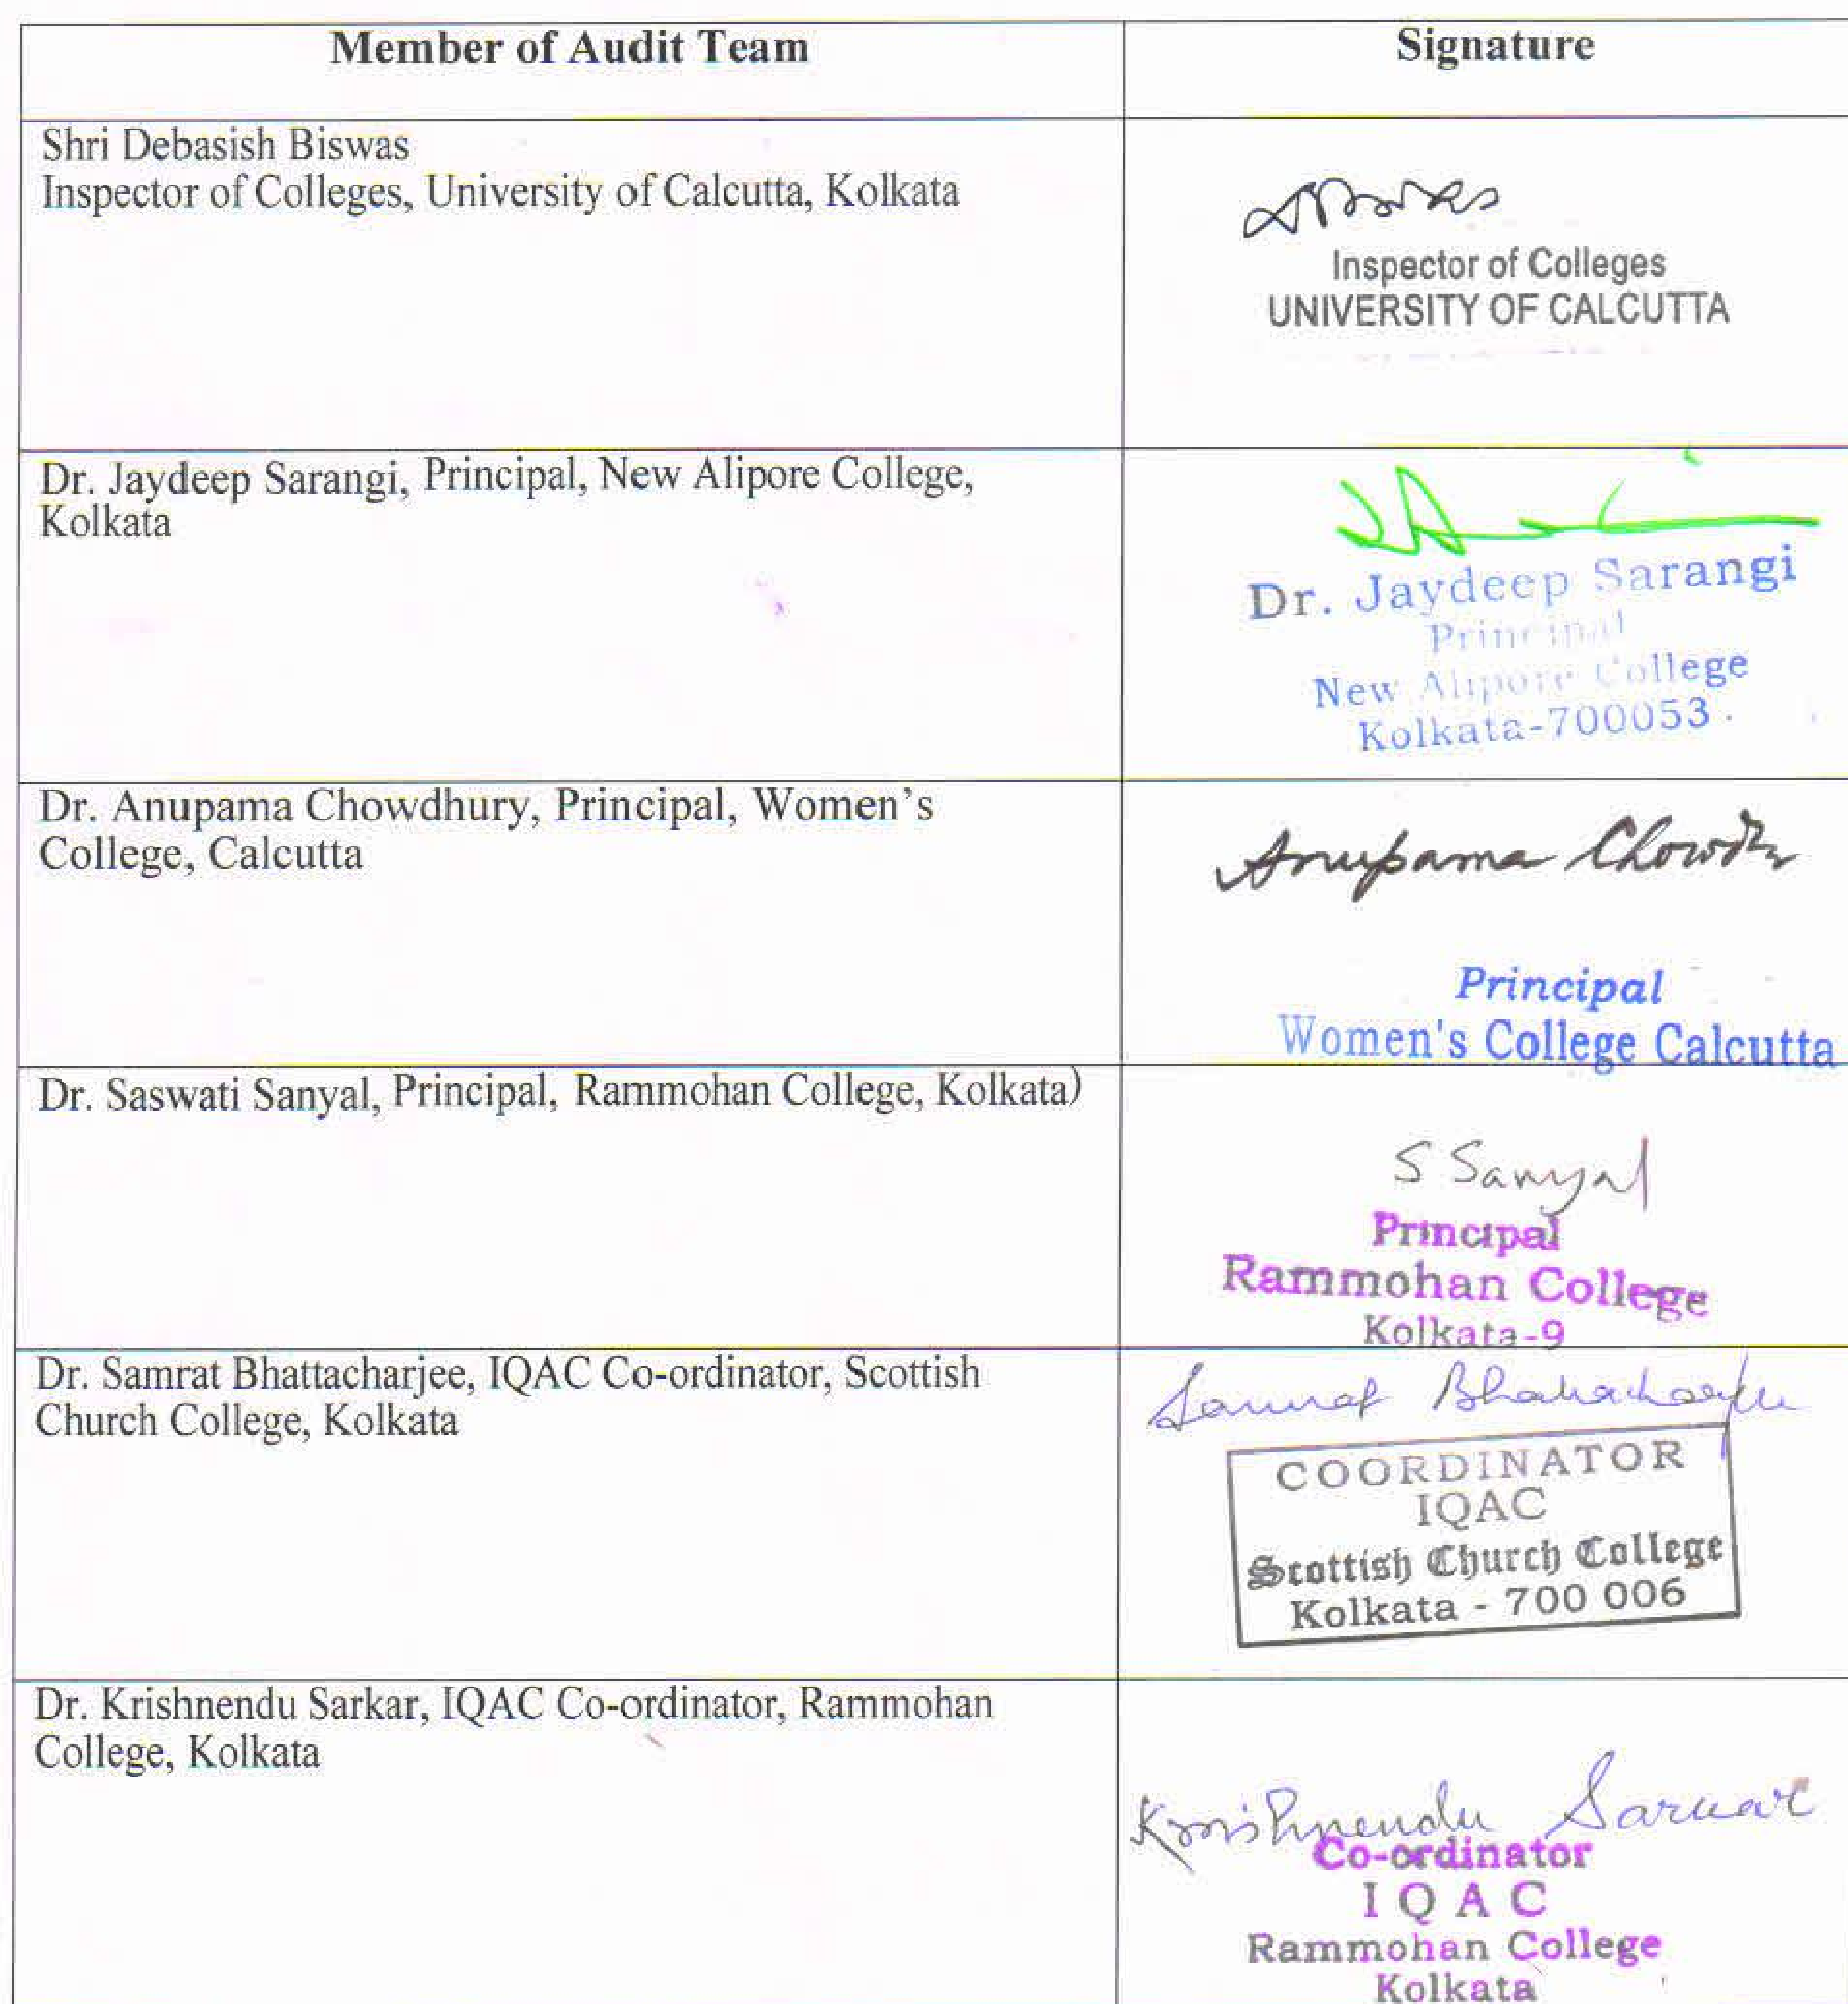 Member of Audit Team
Signature
Shri Debasish Biswas
Inspector of Colleges, University of Calcutta, Kolkata
Inspector of Colleges
UNIVERSITY OF CALCUTTA
Dr. Jaydeep Sarangi, Principal, New Alipore College,
Kolkata
Dr. Jaydeep Sarangi
Principal
New Alipore College
Kolkata-700053.
Dr. Anupama Chowdhury, Principal, Women's
College, Calcutta
Anupama
Principal
Women's College Calcutta
Dr. Saswati Sanyal, Principal, Rammohan College, Kolkata)
S Sanyal
Principal
Rammohan College
Kolkata-9
Dr. Samrat Bhattacharjee, IQAC Co-ordinator, Scottish
Church College, Kolkata
Samrat Bhattacharjee
COORDINATOR
IQAC
Scottish Church College
Kolkata - 700 006
Dr. Krishnendu Sarkar, IQAC Co-ordinator, Rammohan
College, Kolkata
Krishnendu Sarkar
Co-ordinator
I Q A C
Rammohan College
Kolkata